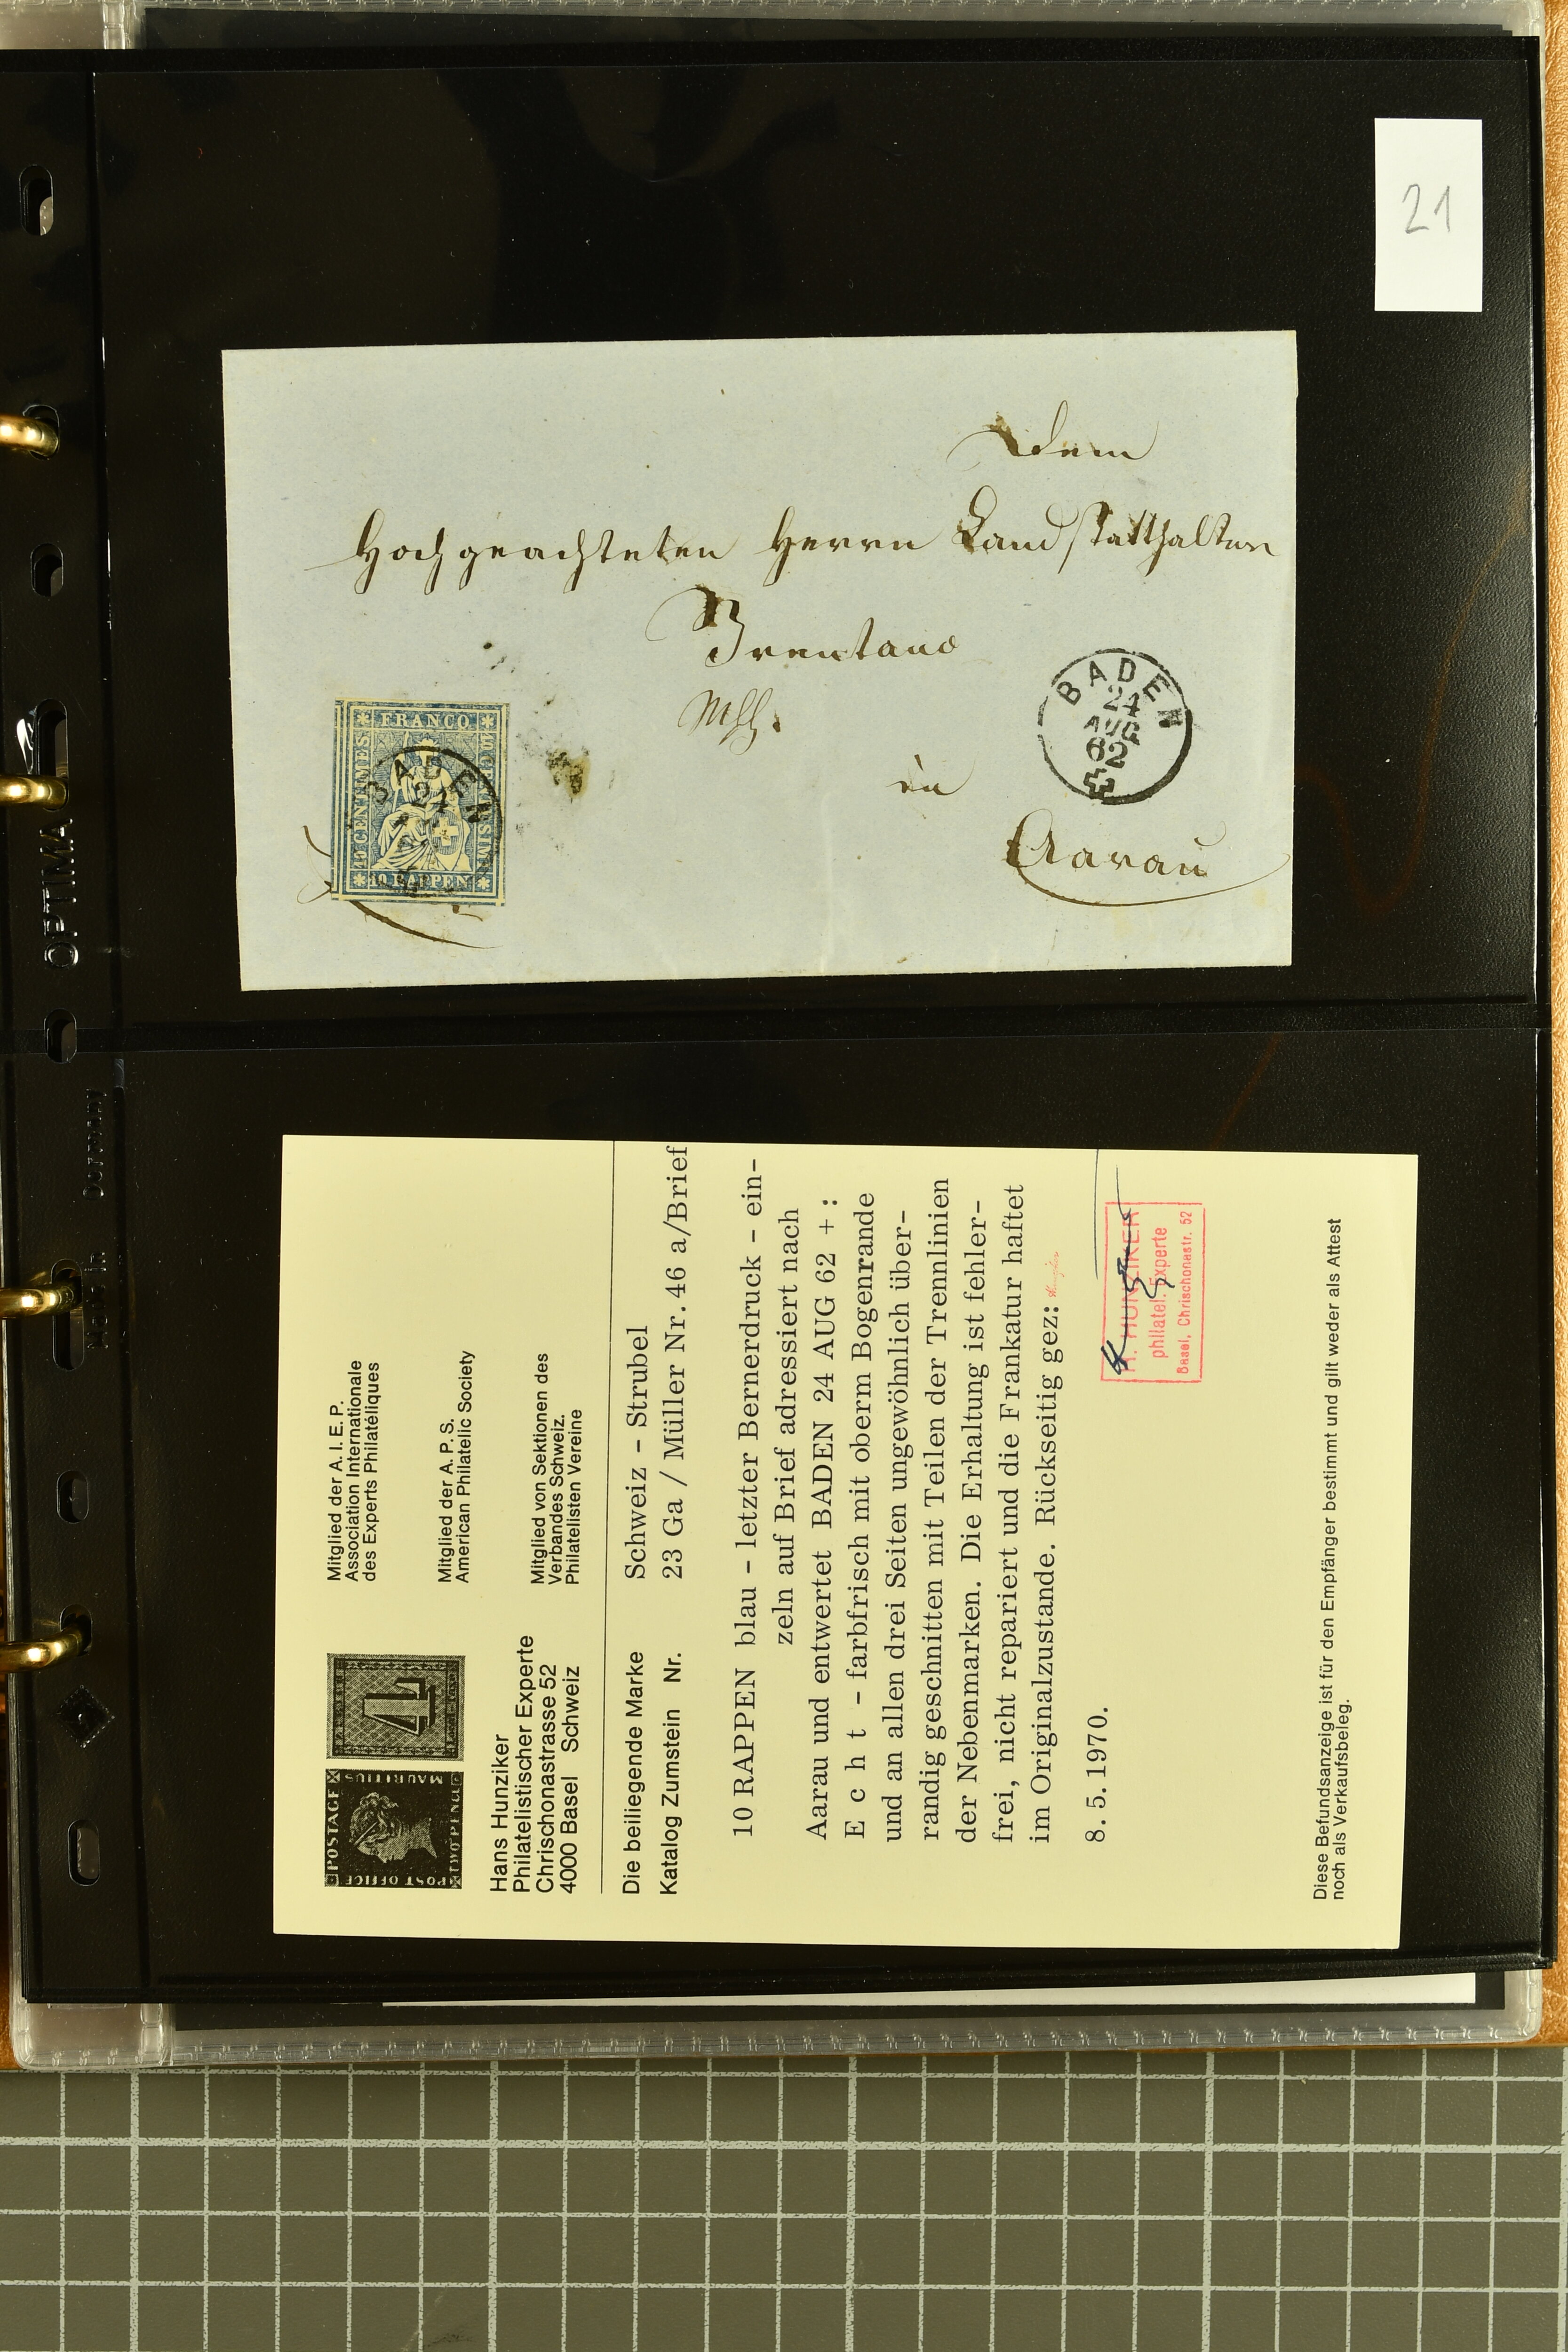 21
Dem
Hochgeachteten Herrn Landstatthalter
Brentano
in
Aarau
BADEN
24
AUG
62
FRANCO
10 CENTIMES
10 RAPPEN
BADEN
OPTIMA
Made in Germany
POSTAGE
MAURITIUS
TWO PENCE
POST OFFICE
Hans Hunziker
Philatelistischer Experte
Chrischonastrasse 52
4000 Basel Schweiz
Mitglied der A. I. E. P.
Association Internationale
des Experts Philatéliques
Mitglied der A. P. S.
American Philatelic Society
Mitglied von Sektionen des
Verbandes Schweiz.
Philatelisten Vereine
Die beiliegende Marke Schweiz - Strubel
Katalog Zumstein Nr. 23 Ga / Müller Nr. 46 a/Brief
10 RAPPEN blau - letzter Bernerdruck - ein-
zeln auf Brief adressiert nach
Aarau und entwertet BADEN 24 AUG 62 + :
E c h t - farbfrisch mit oberm Bogenrande
und an allen drei Seiten ungewöhnlich über-
randig geschnitten mit Teilen der Trennlinien
der Nebenmarken. Die Erhaltung ist fehler-
frei, nicht repariert und die Frankatur haftet
im Originalzustande. Rückseitig gez:
8. 5. 1970.
H. HUNZIKER
philatel. Experte
Basel, Chrischonastr. 52
Diese Befundsanzeige ist für den Empfänger bestimmt und gilt weder als Attest
noch als Verkaufsbeleg.